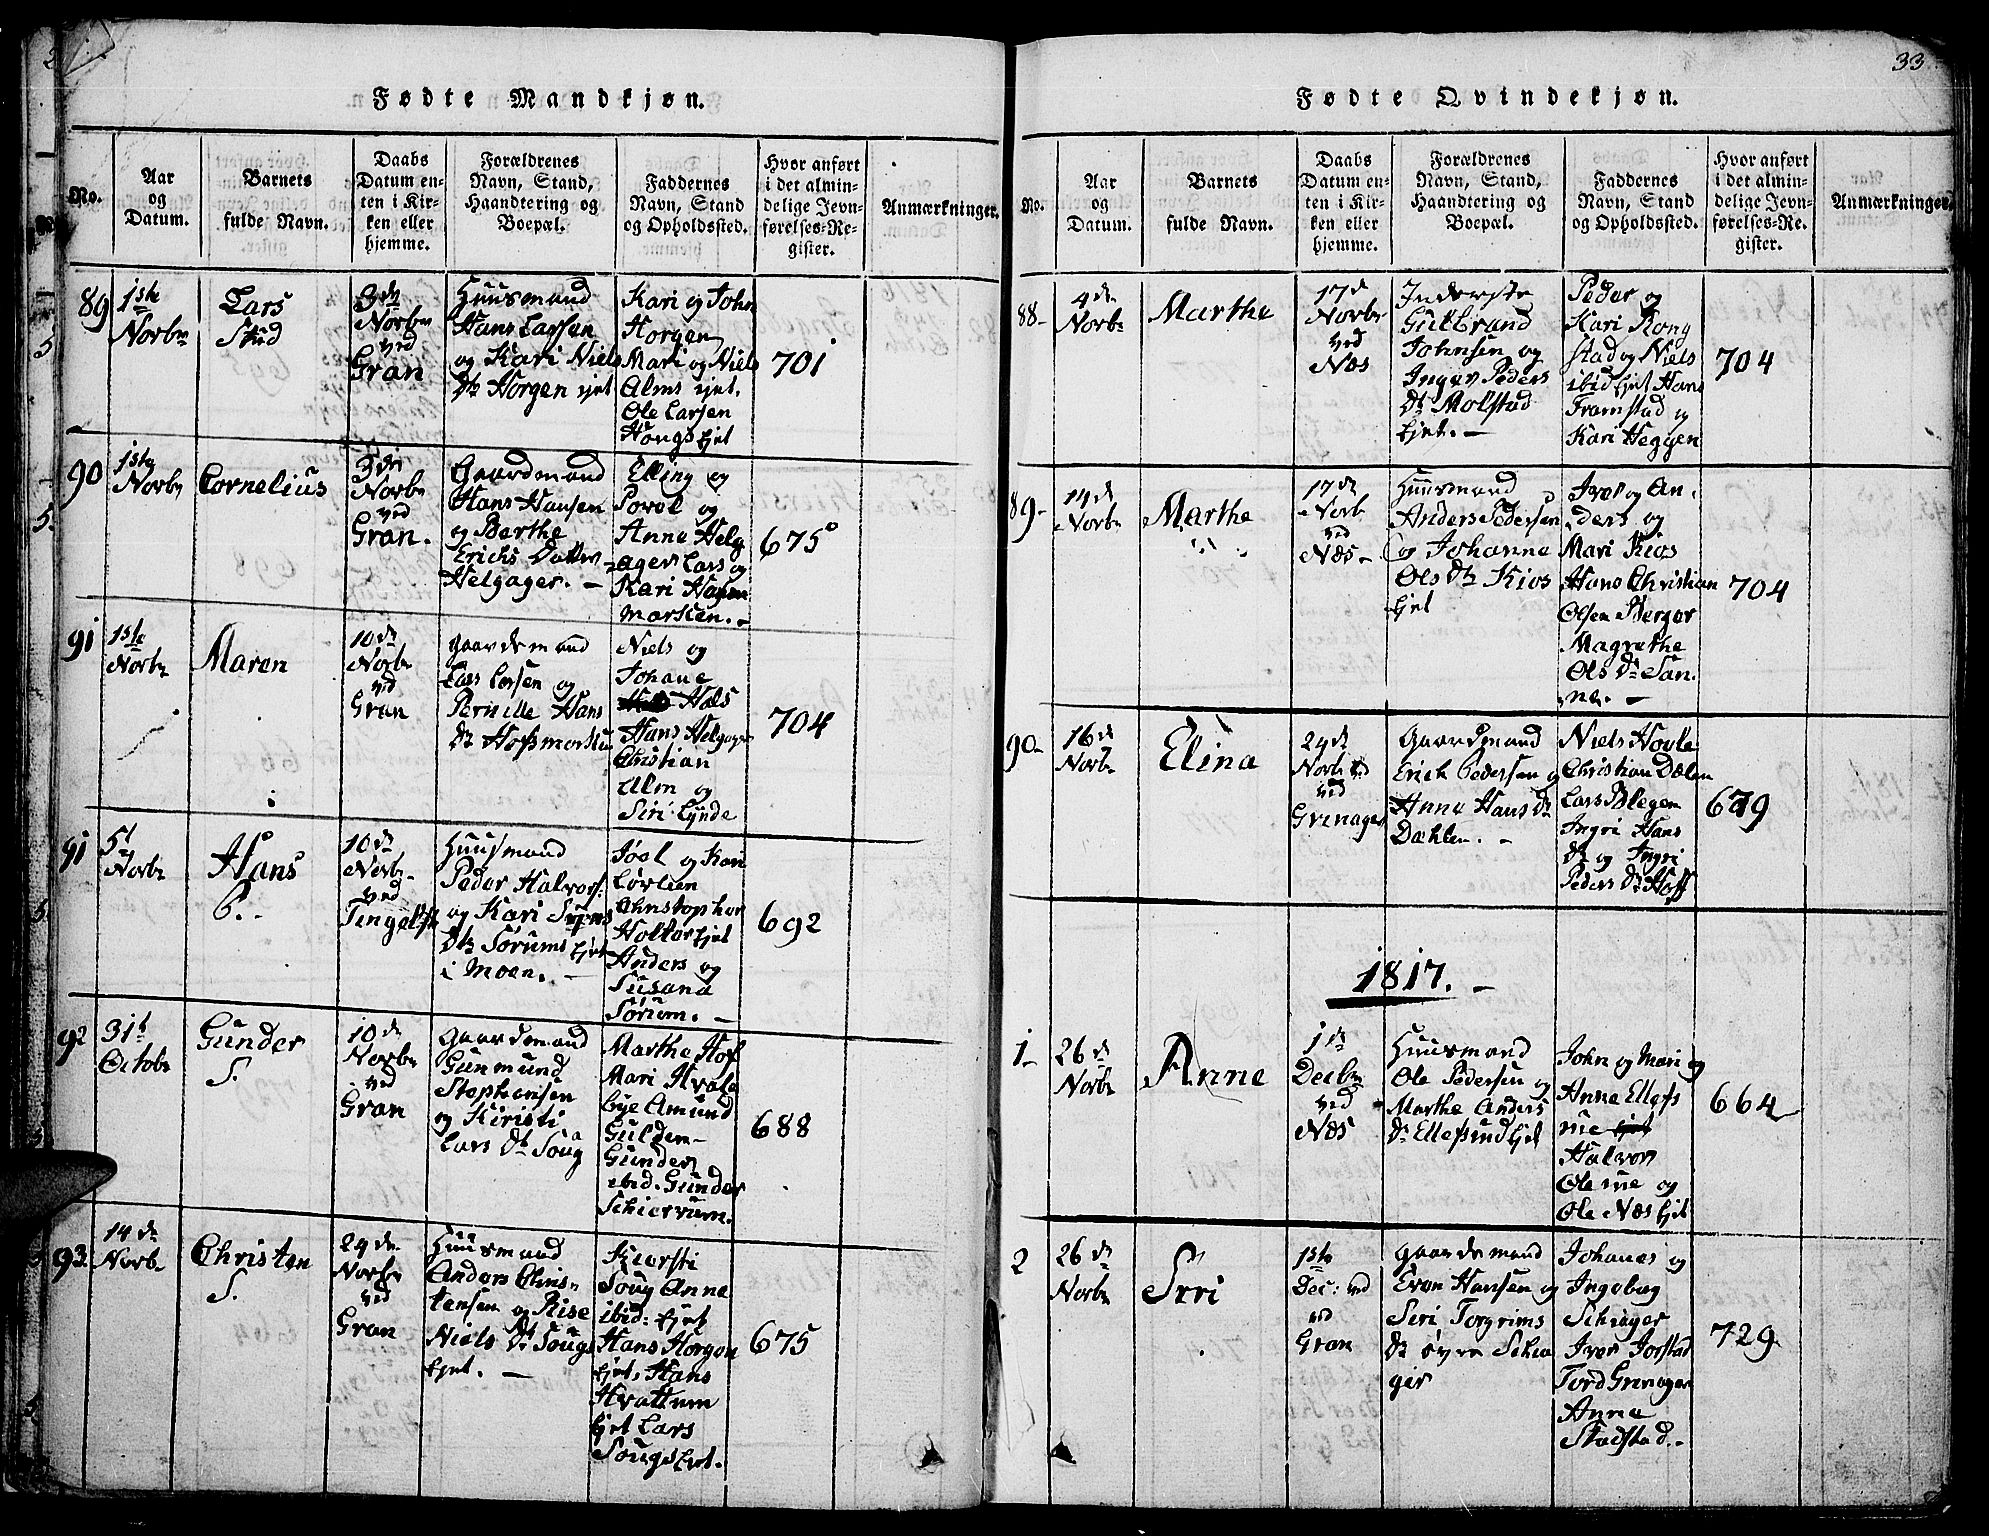 33
Fødte Mandkjøn.
No.
Aar
og
Datum.
Barnets
fulde Navn.
Daabs
Datum en-
ten i Kir-
ken eller
hjemme.
Forældrenes
Navn, Stand,
Haandtering og
Boepæl.
Faddernes
Navn, Stand
og Opholdssted.
Hvor anført
i det almin-
delige Jevn-
førelses-Re-
gister.
Anmærkninger.
89
1ste
Norbr
Lars
Stud
3dn
Norbr
ved
Gran
Huusmand
Hans Larsen
og Kari Niels
Dtr Horgen ejet
Kari og John
Horgen
Mari og Niels
Alms ejet.
Ole Larsen
Hougs Ejet
701
90
1ste
Norbr
Cornelius
3dn
Norbr
ved
Gran.
Gaardmand
Hans Hansen
og Berthe
Erichs Datter
Helgager. -
Elling og
Povol og
Anne Helg
ager Lars og
Kari Hagen
marken. -
675
91
1ste
Norbr
Maren
10dn
Norbr
ved
Gran
Gaardemand
Lars Larsen og
Pernille Hans
Dtr Hoffmorstuen
Niels og
Johane
Haes
Hans Helgager
Christian
Alm og
Siri Lynde
704
91
5t
Norbr
Hans
P. -
10dn
Norbr
ved
Tingelst
Huusmand
Peder Halvors.
og Kari Syvers
Dtr Sørums Ejet
i Moen. -
Joel og Kari
Lørlien
Christopher
Hollar Ejet
Anders og
Susana
Sørum. -
692
92
31t
Octobr
Gunder
S.
10dn
Norbr
ved
Gran
Gaardemand
Gunmund
Stephensen
og Kiristi
Lars Dtr Soug
Marthe Hof
Mari Hvale
bye Amund
Gulden-
Gunder
ibid. Gunder
Schiervum.
688
93.
14dn
Norbr
Christen
S.
24dn
Norbr
ved
Gran
Huusmand
Anders Chris-
tensen og Rise
Niels Dtr Sougs
Ejet. -
Kiersti
Soug Anne
ibid: Ejet
Hans Horgen
Ejet, Hans
Hvattum
Ejet Lars
Sougs Ejet.
675
Fødte Qvindekjøn.
No.
Aar
og
Datum.
Barnets
fulde Navn.
Daabs
Datum en-
ten i Kir-
ken eller
hjemme.
Forældrenes
Navn, Stand,
Haandtering og
Boepæl.
Faddernes
Navn, Stand
og Opholdssted.
Hvor anført
i det almin-
delige Jevn-
førelses-Re-
gister.
Anmærkninger.
88-
4de
Norbr
Marthe
17d
Norbr
ved
Næs
Inderste
Gulbrand
Johnsen og
Inger Peders
Dtr Molstad
Ejet. -
Peder og
Kari Kong
stad og Niels
ibid Ejet Hans
Framstad og
Kari Heggen
704
89-
14d
Norbr
Marthe
17d
Norb
ved
Næs-
Huusmand
Anders Pedersen
og Johanne
Ols Dtr Kios
Ejet
Iver og An-
ders og
Mari Kios
Hans Christian
Olsen Berger
Magrethe
Ols Dr San-
ne. -
704
90-
16d
Norbr
Elina
24d
Norb
ved
Grinager
Gaardmand
Erich Pedersen og
Anne Hans Dr
Dæhlen. -
Niels Hovle
Christian Dælen
Lars Blegen
Ingri Hans
Dtr og Ingri
Peders Dtr Hoff
679
1817. -
1-
26d
Norbr
Anne
1st
Decbr
ved
Næs
Huusmand
Ole Pedersen og
Marthe Anders
Dr Ellefsrud Ejet
John og Mari og
Anne Ellefs
rue
Halvor
Ole rue og
Ole Næs Ejet
664
2
26d
Norbr
Siri
1ste
Dec: ved
ved
Gran
Gaardemand
Even Hansen og
Siri Torgrims
Dtr øvre Schia
ger
Johanes og
Ingebog
Schiager
Iver Jorstad
Tord Grinager
Anne
Stadstad. -
729